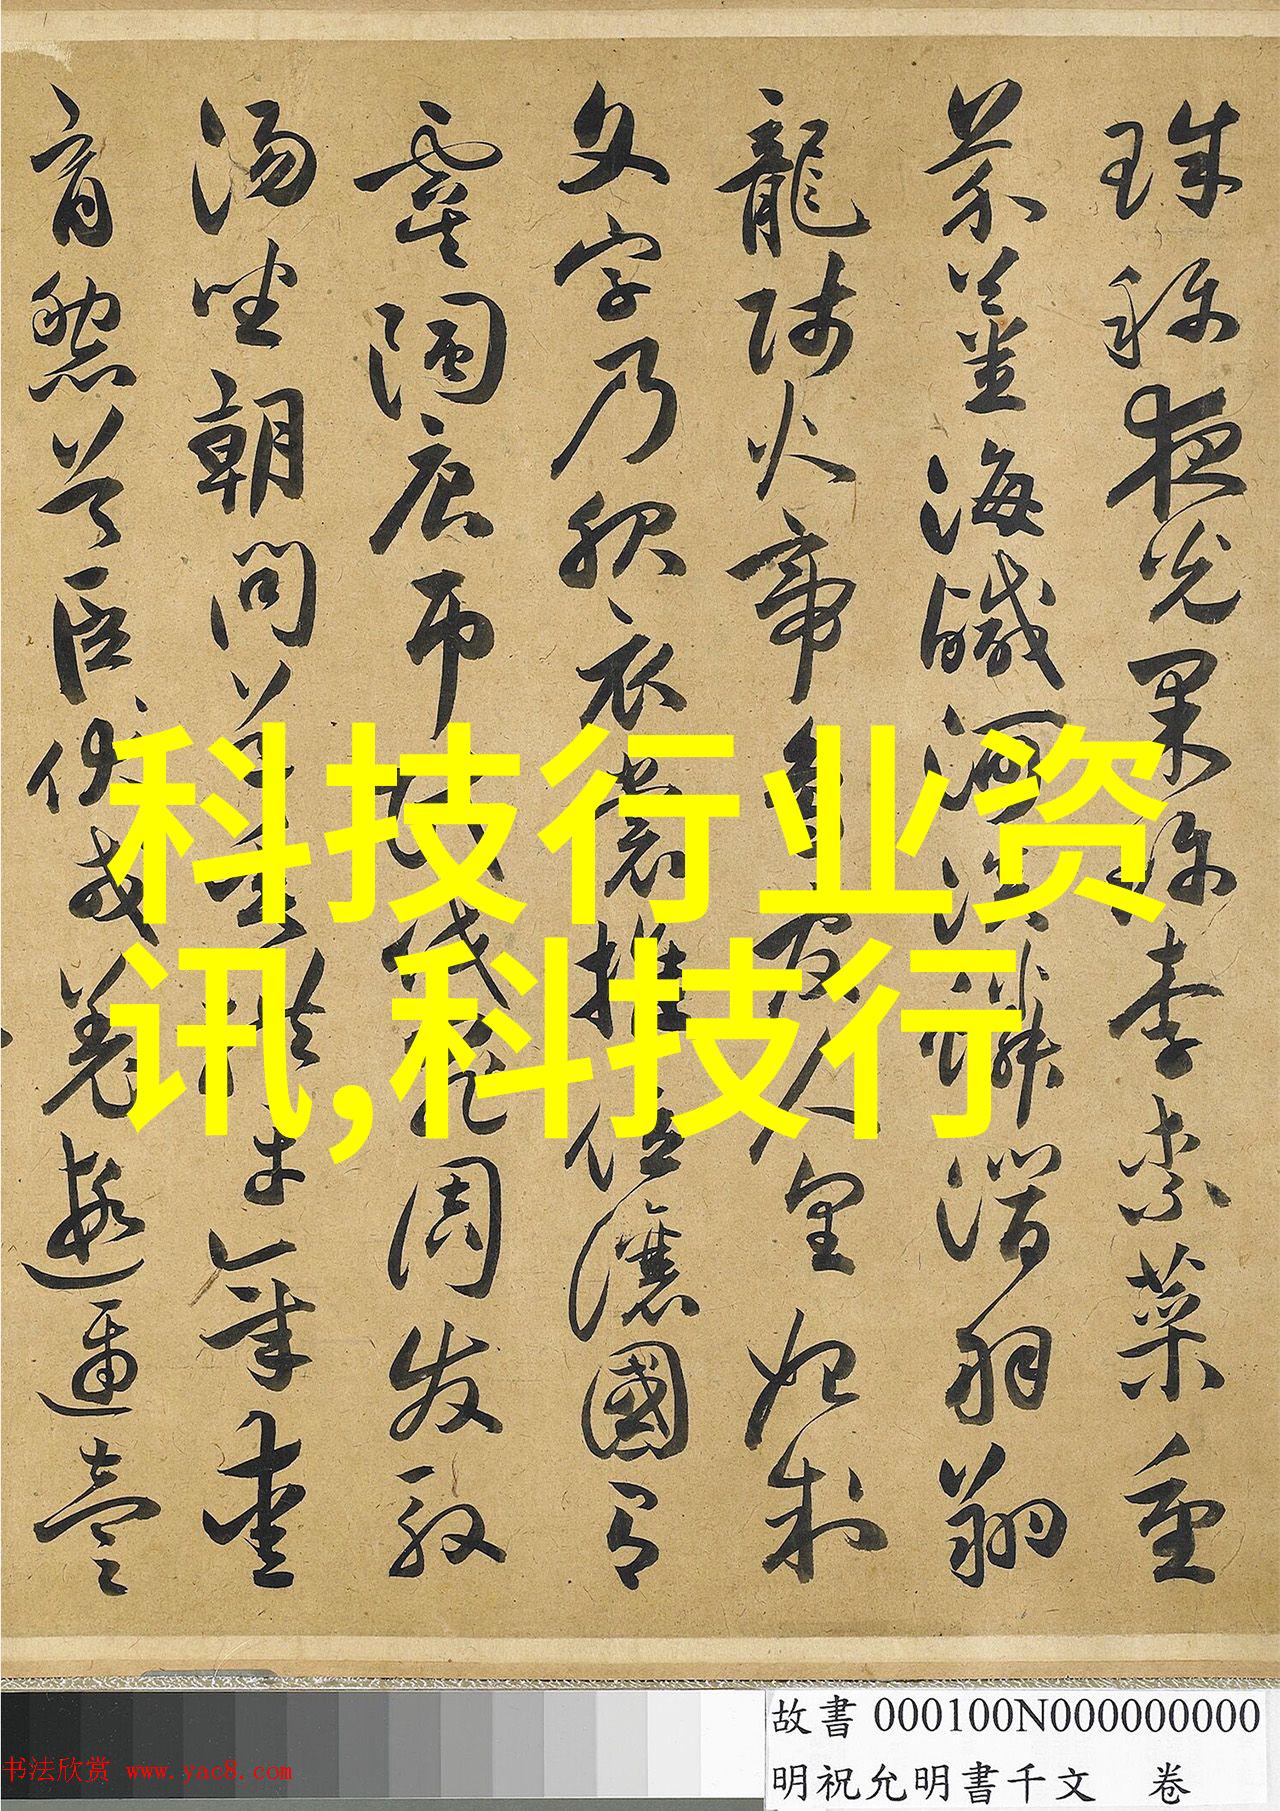 珠称夜光果珍李柰菜重
芥薑海鹹河淡鱗潛羽翔
龍師火帝鳥官人皇始制
文字乃服衣裳推位讓國有
虞陶唐弔民伐罪周發殷
湯坐朝問道垂拱平章愛
育黎首臣伏戎羌遐邇壹
科技行业资
讯,科技行
故書 000100N000000000
明祝允明書千文 卷
书法欣赏 www.yac8.com